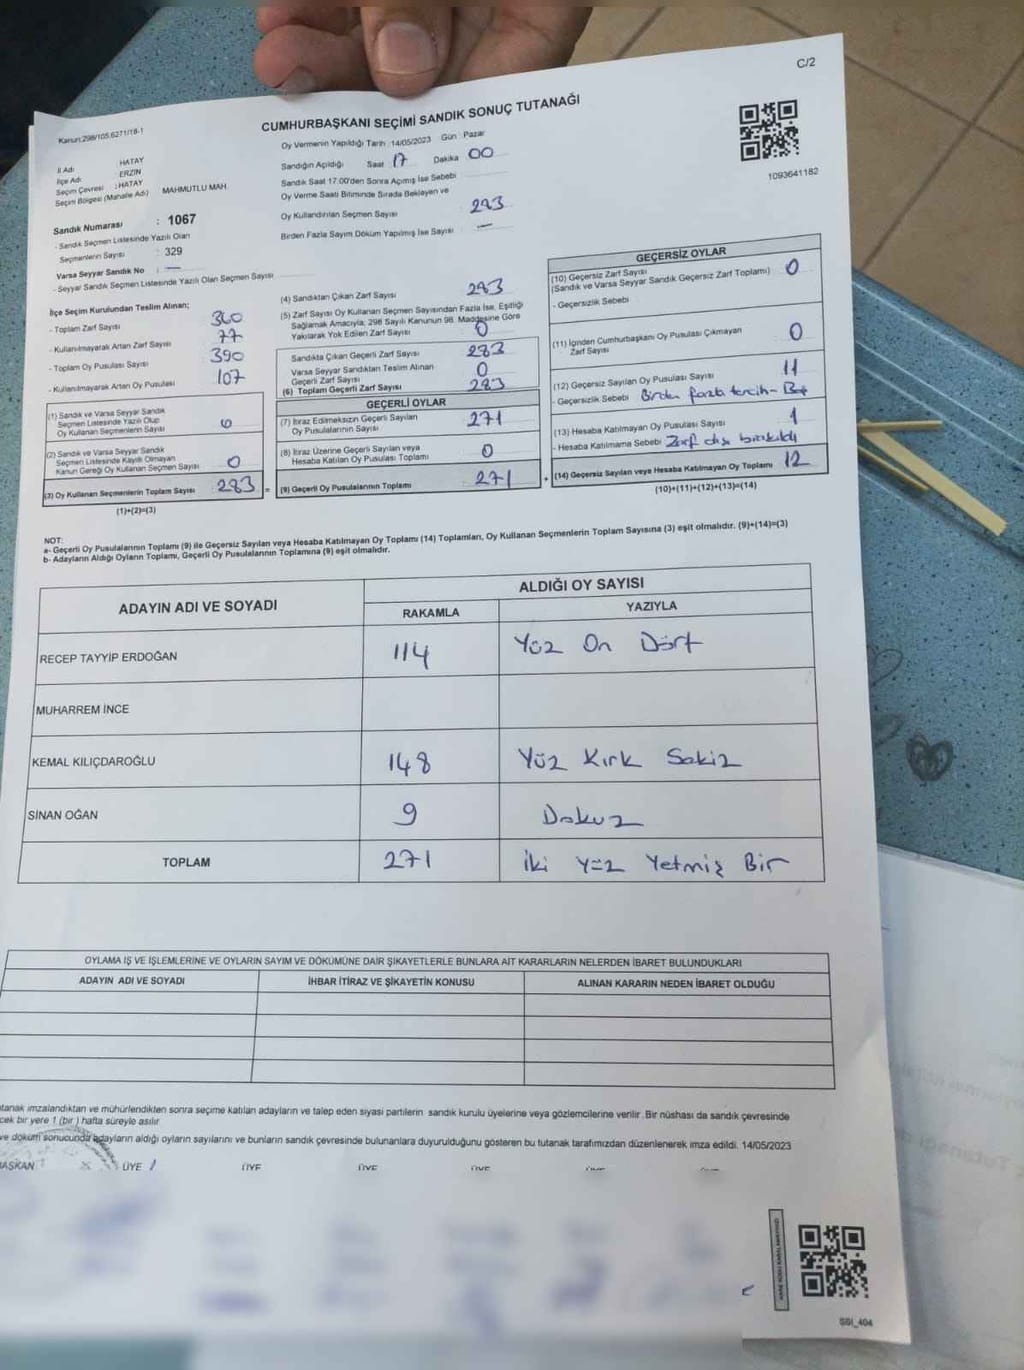 C/2
Kanun:298/105,6271/18-1
CUMHURBAŞKANI SEÇİMİ SANDIK SONUÇ TUTANAĞI
İl Adı HATAY
İlçe Adı ERZİN
Seçim Çevresi : HATAY
Seçim Bölgesi (Mahalle Adı) MAHMUTLU MAH.
Sandık Numarası : 1067
- Sandık Seçmen Listesinde Yazılı Olan
Seçmenlerin Sayısı : 329
Varsa Seyyar Sandık No : —
- Seyyar Sandık Seçmen Listesinde Yazılı Olan Seçmen Sayısı
Oy Vermenin Yapıldığı Tarih :14/05/2023 Gün : Pazar
Sandığın Açıldığı Saat 17 Dakika 00
Sandık Saat 17.00'den Sonra Açılmış İse Sebebi
Oy Verme Saati Bitiminde Sırada Bekleyen ve
Oy Kullandırılan Seçmen Sayısı 283
Birden Fazla Sayım Döküm Yapılmış İse Sayısı —
1093641182
İlçe Seçim Kurulundan Teslim Alınan;
- Toplam Zarf Sayısı 360
- Kullanılmayarak Artan Zarf Sayısı 77
- Toplam Oy Pusulası Sayısı 390
- Kullanılmayarak Artan Oy Pusulası 107
(1) Sandık ve Varsa Seyyar Sandık
Seçmen Listesinde Yazılı Olup
Oy Kullanan Seçmenlerin Sayısı 0
(2) Sandık ve Varsa Seyyar Sandık
Seçmen Listesinde Kayıtlı Olmayan
Kanun Gereği Oy Kullanan Seçmen Sayısı 0
(3) Oy Kullanan Seçmenlerin Toplam Sayısı 283 =
(1)+(2)=(3)
(4) Sandıktan Çıkan Zarf Sayısı 283
(5) Zarf Sayısı Oy Kullanan Seçmen Sayısından Fazla İse, Eşitliği
Sağlamak Amacıyla; 298 Sayılı Kanunun 98. Maddesine Göre
Yakılarak Yok Edilen Zarf Sayısı 0
Sandıkta Çıkan Geçerli Zarf Sayısı 283
Varsa Seyyar Sandıktan Teslim Alınan
Geçerli Zarf Sayısı 0
(6) Toplam Geçerli Zarf Sayısı 283
GEÇERLİ OYLAR
(7) İtiraz Edilmeksizin Geçerli Sayılan
Oy Pusulalarının Sayısı 271
(8) İtiraz Üzerine Geçerli Sayılan veya
Hesaba Katılan Oy Pusulası Toplamı 0
(9) Geçerli Oy Pusulalarının Toplamı 271 +
GEÇERSİZ OYLAR
(10) Geçersiz Zarf Sayısı
(Sandık ve Varsa Seyyar Sandık Geçersiz Zarf Toplamı) 0
- Geçersizlik Sebebi
(11) İçinden Cumhurbaşkanı Oy Pusulası Çıkmayan
Zarf Sayısı 0
(12) Geçersiz Sayılan Oy Pusulası Sayısı 11
- Geçersizlik Sebebi Birden fazla tercih - Boş
(13) Hesaba Katılmayan Oy Pusulası Sayısı 1
- Hesaba Katılmama Sebebi Zarf dışı bırakıldı
(14) Geçersiz Sayılan veya Hesaba Katılmayan Oy Toplamı 12
(10)+(11)+(12)+(13)=(14)
NOT:
a- Geçerli Oy Pusulalarının Toplamı (9) ile Geçersiz Sayılan veya Hesaba Katılmayan Oy Toplamı (14) Toplamları, Oy Kullanan Seçmenlerin Toplam Sayısına (3) eşit olmalıdır. (9)+(14)=(3)
b- Adayların Aldığı Oyların Toplamı, Geçerli Oy Pusulalarının Toplamına (9) eşit olmalıdır.
ADAYIN ADI VE SOYADI ALDIĞI OY SAYISI
RAKAMLA YAZIYLA
RECEP TAYYİP ERDOĞAN 114 Yüz On Dört
MUHARREM İNCE
KEMAL KILIÇDAROĞLU 148 Yüz Kırk Sekiz
SİNAN OĞAN 9 Dokuz
TOPLAM 271 İki Yüz Yetmiş Bir
OYLAMA İŞ VE İŞLEMLERİNE VE OYLARIN SAYIM VE DÖKÜMÜNE DAİR ŞİKAYETLERLE BUNLARA AİT KARARLARIN NELERDEN İBARET BULUNDUKLARI
ADAYIN ADI VE SOYADI İHBAR İTİRAZ VE ŞİKAYETİN KONUSU ALINAN KARARIN NEDEN İBARET OLDUĞU
utanak imzalandıktan ve mühürlendikten sonra seçime katılan adayların ve talep eden siyasi partilerin sandık kurulu üyelerine veya gözlemcilerine verilir. Bir nüshası da sandık çevresinde
cek bir yere 1 (bir ) hafta süreyle asılır.
ve döküm sonucunda adayların aldığı oyların sayılarını ve bunların sandık çevresinde bulunanlara duyurulduğunu gösteren bu tutanak tarafımızdan düzenlenerek imza edildi. 14/05/2023
AŞKAN ÜYE ÜYE ÜYE ÜYE ÜYE
SGI_404